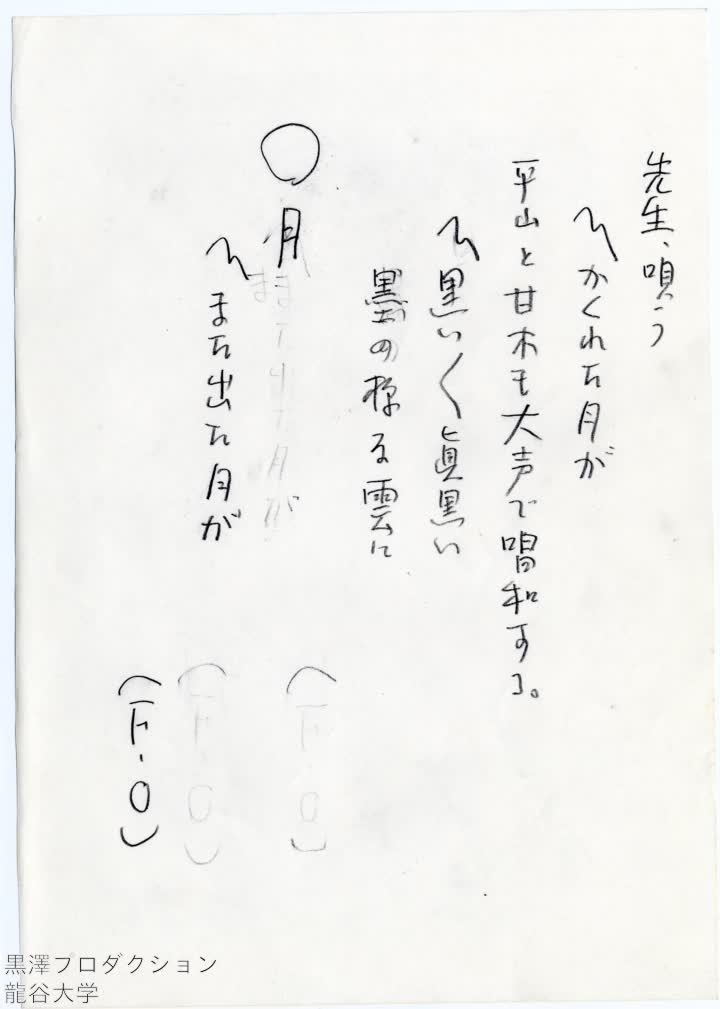 先生、唄う
〽かくれた月が
平山と甘木も大声で唱和する。
〽黒い〱眞黒い
墨の様な雲に
○月
また出た月が
〽また出た月が
(F・O)
(F・O)
(F・O)
黒澤プロダクション
龍谷大学